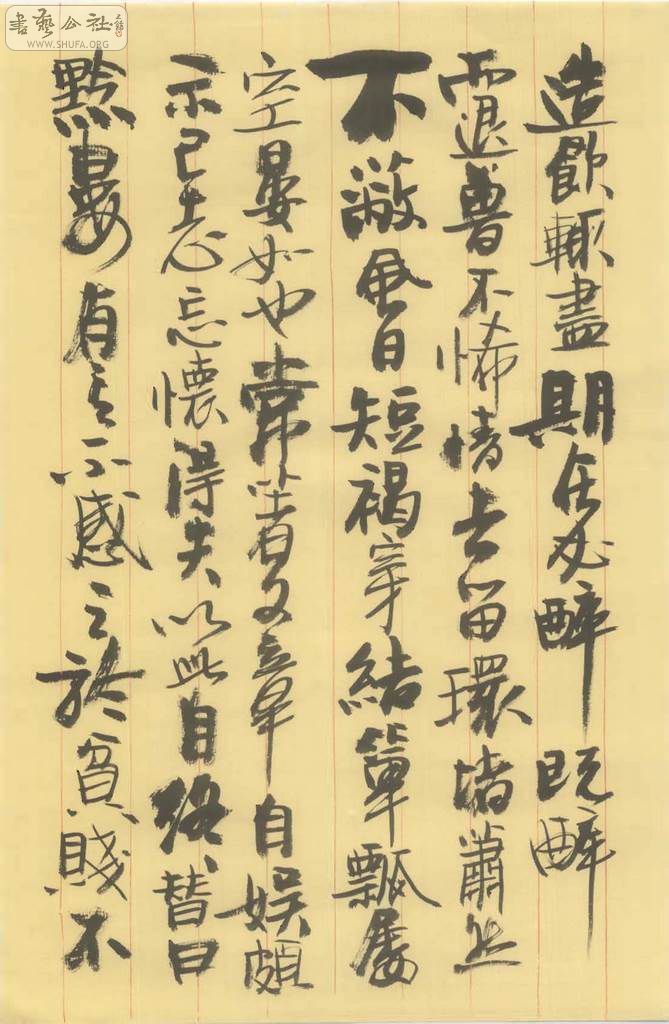 書藝公社
WWW.SHUFA.ORG
造飲輒盡期在必醉既醉
而退曾不悕情去留環堵蕭然
不蔽風日短褐穿結簞瓢屢
空晏如也常著文章自娛頗
示己志忘懷得失以此自終贊曰
黔婁有言不慼々於貧賤不